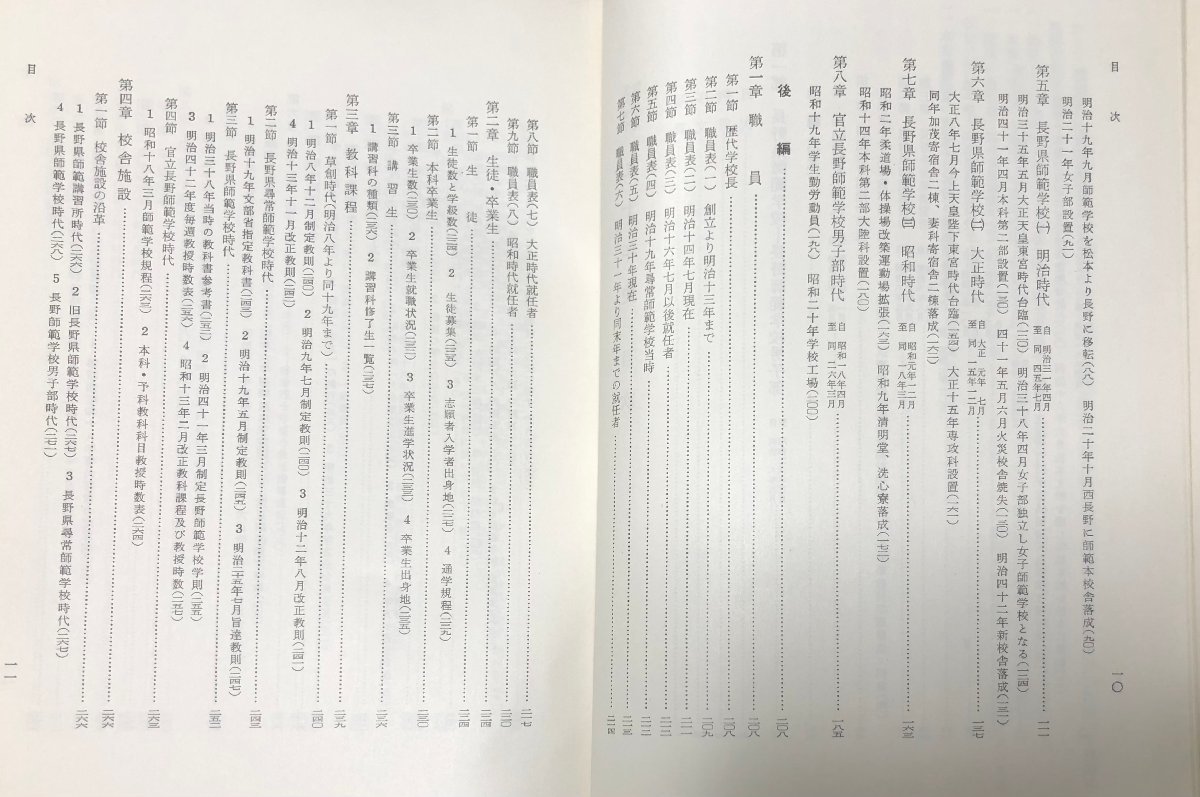 目次
一〇
明治十九年九月師範学校を松本より長野に移転(八八) 明治二十年十月西長野に師範本校舎落成(九〇)
明治二十一年女子部設置(九一)
第五章 長野県師範学校㈠ 明治時代 自 明治三一年四月 至 同 四五年七月……一一一
明治三十五年五月大正天皇東宮時代台臨(一二〇) 明治三十八年四月女子部独立し女子師範学校となる(一二四)
明治四十一年四月本科第二部設置(一三〇) 四十一年五月六月火災校舎焼失(一三〇) 明治四十二年新校舎落成(一三一)
第六章 長野県師範学校㈡ 大正時代 自 大正 元年 七月 至 同 一五年一二月……一三七
大正八年七月今上天皇陛下東宮時代台臨(一五四) 大正十五年専攻科設置(一六一)
同年加茂寄宿舎二棟、妻科寄宿舎二棟落成(一六二)
第七章 長野県師範学校㈢ 昭和時代 自 昭和元年一二月 至 同 一八年三月……一六三
昭和二年柔道場・体操場改築運動場拡張(一六三) 昭和九年清明堂、洗心寮落成(一七三)
昭和十四年本科第二部大陸科設置(一八〇)
第八章 官立長野師範学校男子部時代 自 昭和一八年四月 至 同 二六年三月……一八五
昭和十九年学生勤労動員(一九八) 昭和二十年学校工場(二〇〇)
後編……二〇八
第一章 職員……二〇八
第一節 歴代学校長……二〇八
第二節 職員表(一) 創立より明治十三年まで……二〇九
第三節 職員表(二) 明治十四年七月現在……二一一
第四節 職員表(三) 明治十六年七月以後就任者……二一二
第五節 職員表(四) 明治十九年尋常師範学校当時……二一二
第六節 職員表(五) 明治三十年現在……二一三
第七節 職員表(六) 明治三十一年より同末年までの就任者……二一四
第八節 職員表(七) 大正時代就任者……二一七
第九節 職員表(八) 昭和時代就任者……二二〇
第二章 生徒・卒業生……二二四
第一節 生徒……二二四
1 生徒数と学級数(二二四) 2 生徒募集(二二五) 3 志願者入学者出身地(二二七) 4 通学規程(二二九)
第二節 本科卒業生……二三〇
1 卒業生数(二三〇) 2 卒業生就職状況(二三二) 3 卒業生進学状況(二三三) 4 卒業生出身地(二三五)
第三節 講習生……二三六
1 講習科の種類(二三六) 2 講習科修了生一覧(二三七)
第三章 教科課程……二三九
第一節 草創時代(明治八年より同十九年まで)……二四〇
1 明治八年十二月制定教則(二四〇) 2 明治九年七月制定教則(二四〇) 3 明治十二年八月改正教則(二四一)
4 明治十三年十一月改正教則(二四二)
第二節 長野県尋常師範学校時代……二四三
1 明治十九年文部省指定教科書(二四三) 2 明治十九年五月制定教則(二四五) 3 明治二五年七月旨達教則(二四七)
第三節 長野県師範学校時代……二五二
1 明治三十八年当時の教科書参考書(二五二) 2 明治四十一年三月制定長野師範学校学則(二五五)
3 明治四十二年度毎週教授時数表(二五六) 4 昭和十三年二月改正教科課程及び教授時数(二五七)
第四節 官立長野師範学校時代……二六三
1 昭和十八年三月師範学校規程(二六三) 2 本科・予科教科科目教授時数表(二六四)
第四章 校舎施設……二六六
第一節 校舎施設の沿革……二六六
1 長野県師範講習所時代(二六六) 2 旧長野県師範学校時代(二六七) 3 長野県尋常師範学校時代(二六七)
4 長野県師範学校時代(二六八) 5 長野師範学校男子部時代(二七一)
目次
一一